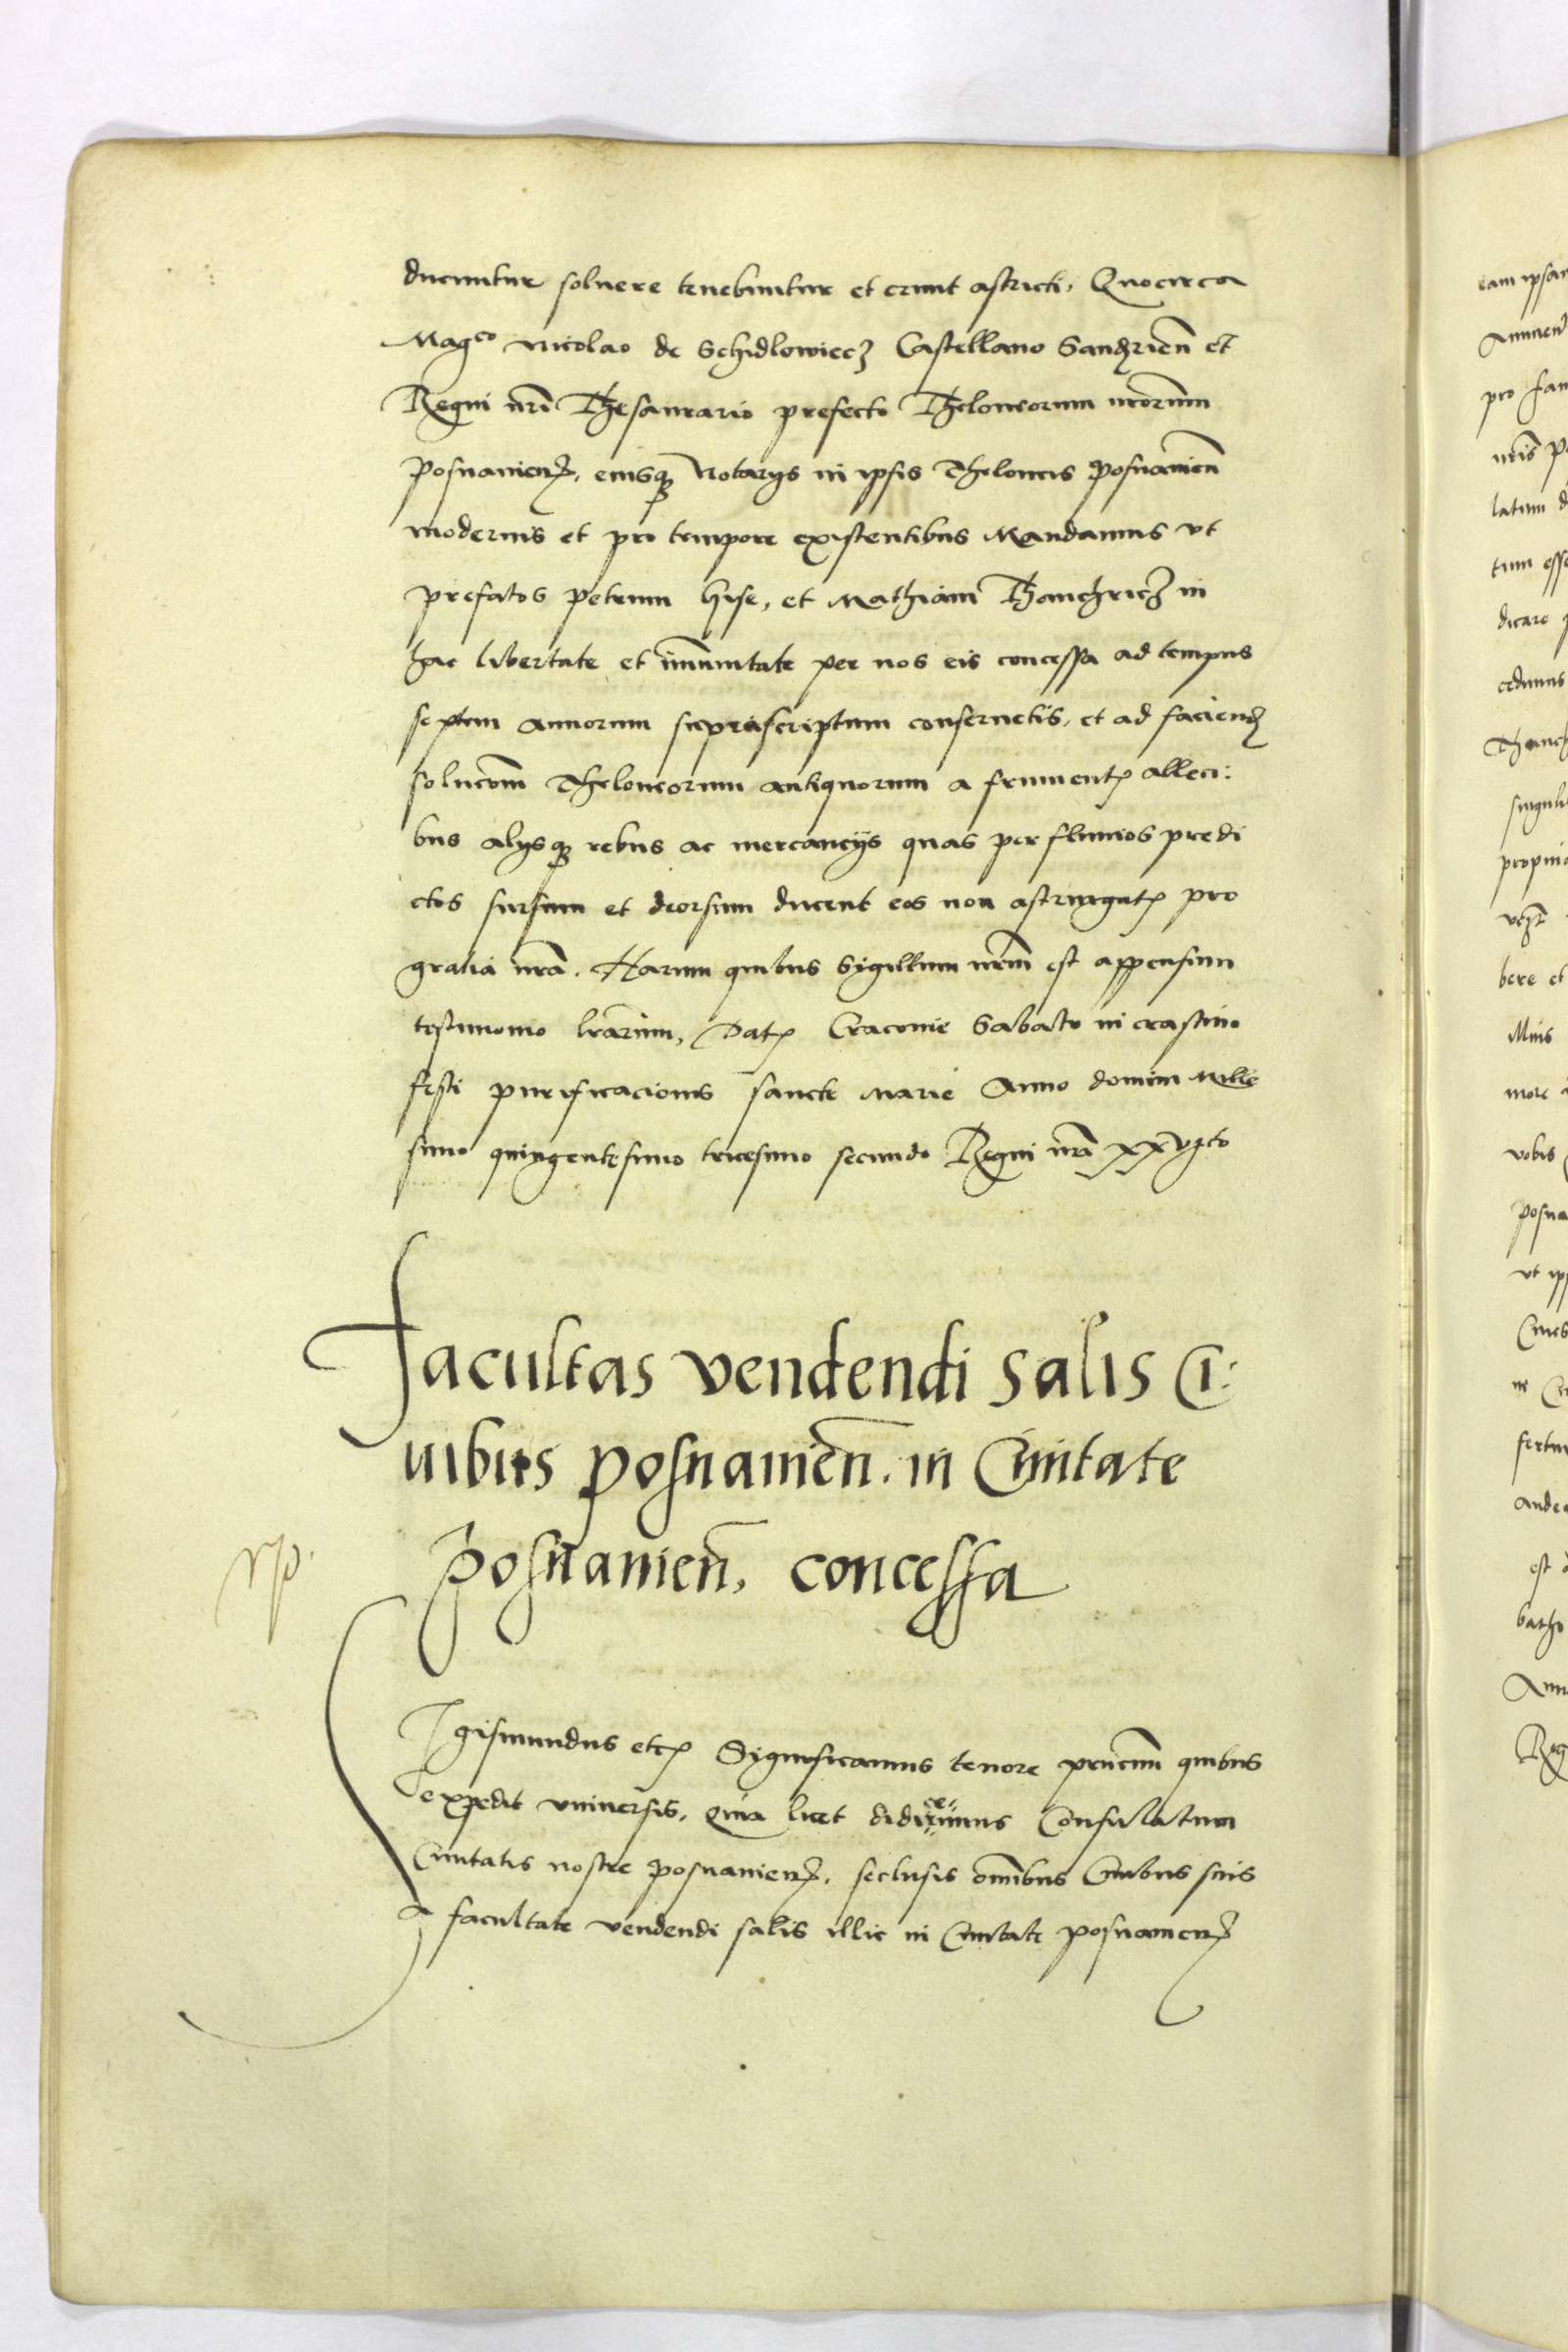 ducuntur soluere tenebuntur et erunt astricti, Quocirca
Magco Nicolao de Schidlowiecz Castellano Sandrien et
Regni nri Thesaurario prefecto Theloneorum nrorum
posnanien, eiusq Notarys in ipsis Theloneis posnanien
modernis et pro tempore existentibus Mandamus vt
prefatos petrum hise, et Mathiam Thanchricz in
hac libertate et imunitate per nos eis concessa ad tempus
septem annorum suprascriptum conseruetis, et ad faciend
solucom Theloneorum antiquorum a frument alleci:
bus alysq rebus ac mercancys quas per fluuios predi
ctos sursum et deorsum ducent eos non astringat pro
gratia nra. Harum quibus Sigillum nrm est appensum
testimonio lrarum, Dat Cracouie Sabato in crastino
festi purificacionis sancte Marie Anno domini Mille
simo quingentesimo tricesimo secundo Regni nri xxvjto
Facultas vendendi salis Ci:
uibus posnanien. in Ciuitate
posnanien, concessa
Sigismundus etc Significamus tenore pntium quibus
expedit vniuersis, Quia licet dideramus Consulatum
Ciuitatis nostre posnanien, seclusis omibus Ciuibus suis
a facultate vendendi salis illic in Ciuitate posnanien
eam ipsam
pro fam
nris
latum
tum esse
dicare
cedimus
Thanch
singuli
bere et
illius
more
vobis
posna
vt ip
Ciues
est
Reg